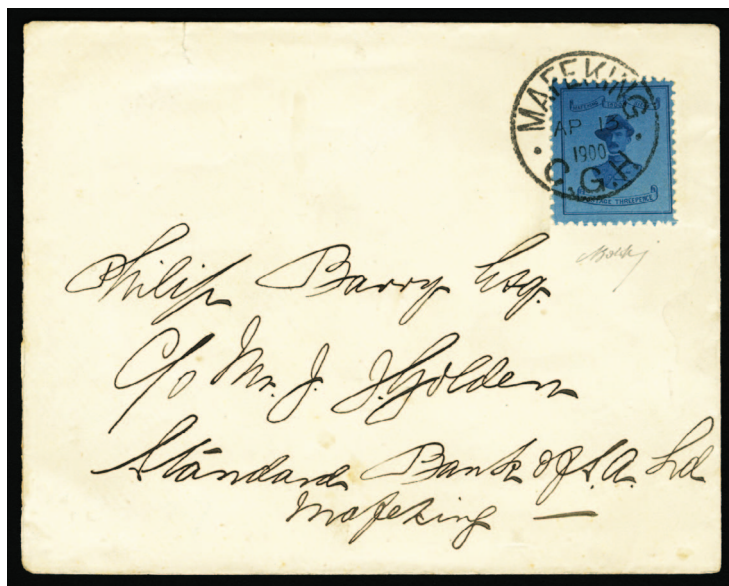 MAFEKING
AP 1
1900
C.G.H.
POSTAGE THREEPENCE
Philip Barry Esq.
C/o Mr. J. J. Golden
Standard Bank of S.A. Ltd
Mafeking —